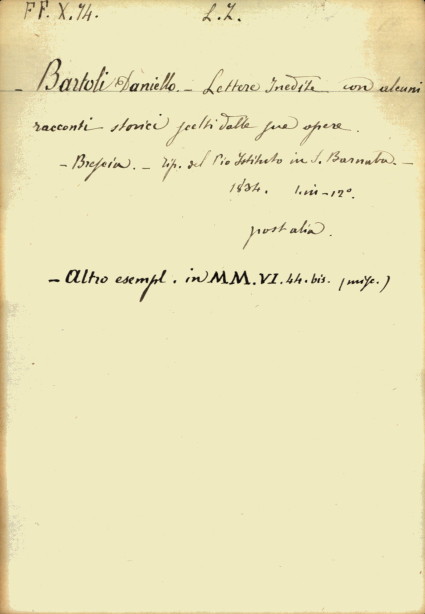 FF. X. 74. L. Z.
- Bartoli Daniello. - Lettere Inedite con alcuni
racconti storici scelti dalle sue opere.
- Brescia. - Tip. del Pio Istituto in S. Barnaba. -
1834. 1. in - 12º.
post alia.
- Altro esempl. in MM. VI. 44. bis. (misc.)